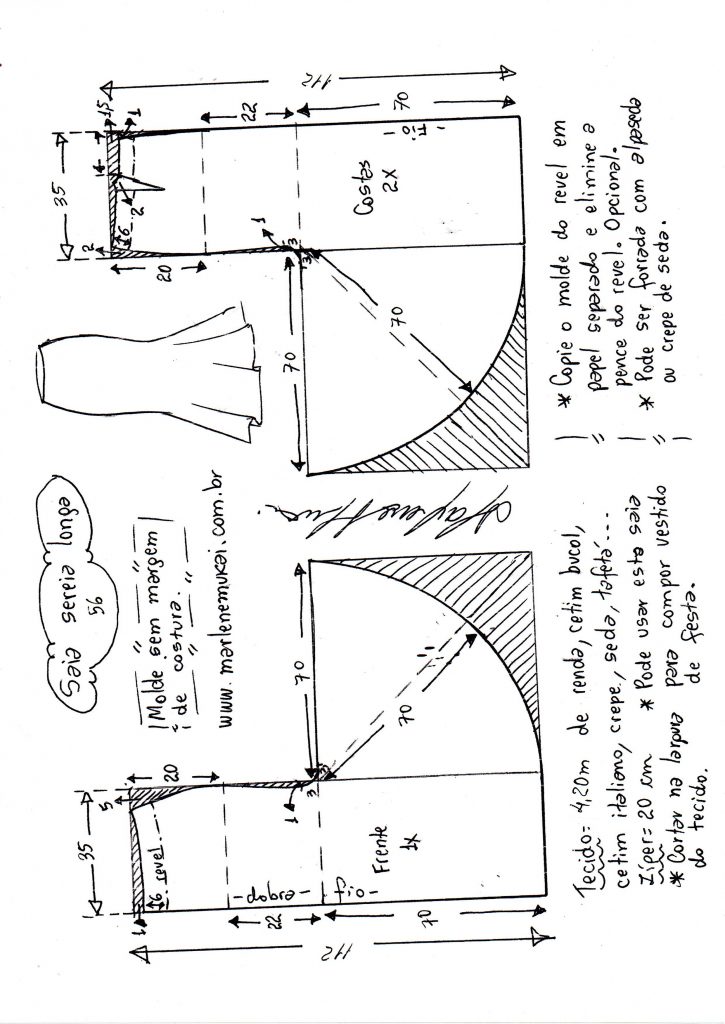 Saia sereia longa
56
Molde sem margem
de costura.
www.marlenemukai.com.br
35
5
20
1
6
revel
1
3
dobra
fio
22
112
70
Frente
1X
70
70
112
1,5
1
35
4
2
6
2
22
20
1
3
3
70
Fio
Costas
2X
70
70
Tecido = 4,20m de renda, cetim bucol,
cetim italiano, crepe, seda, tafetá...
Zíper = 20 cm * Pode usar esta saia
* Cortar na largura para compor vestido
do tecido. de festa.
* Copie o molde do revel em
papel separado e elimine a
pence do revel. Opcional.
* Pode ser forrada com alpaseda
ou crepe de seda.